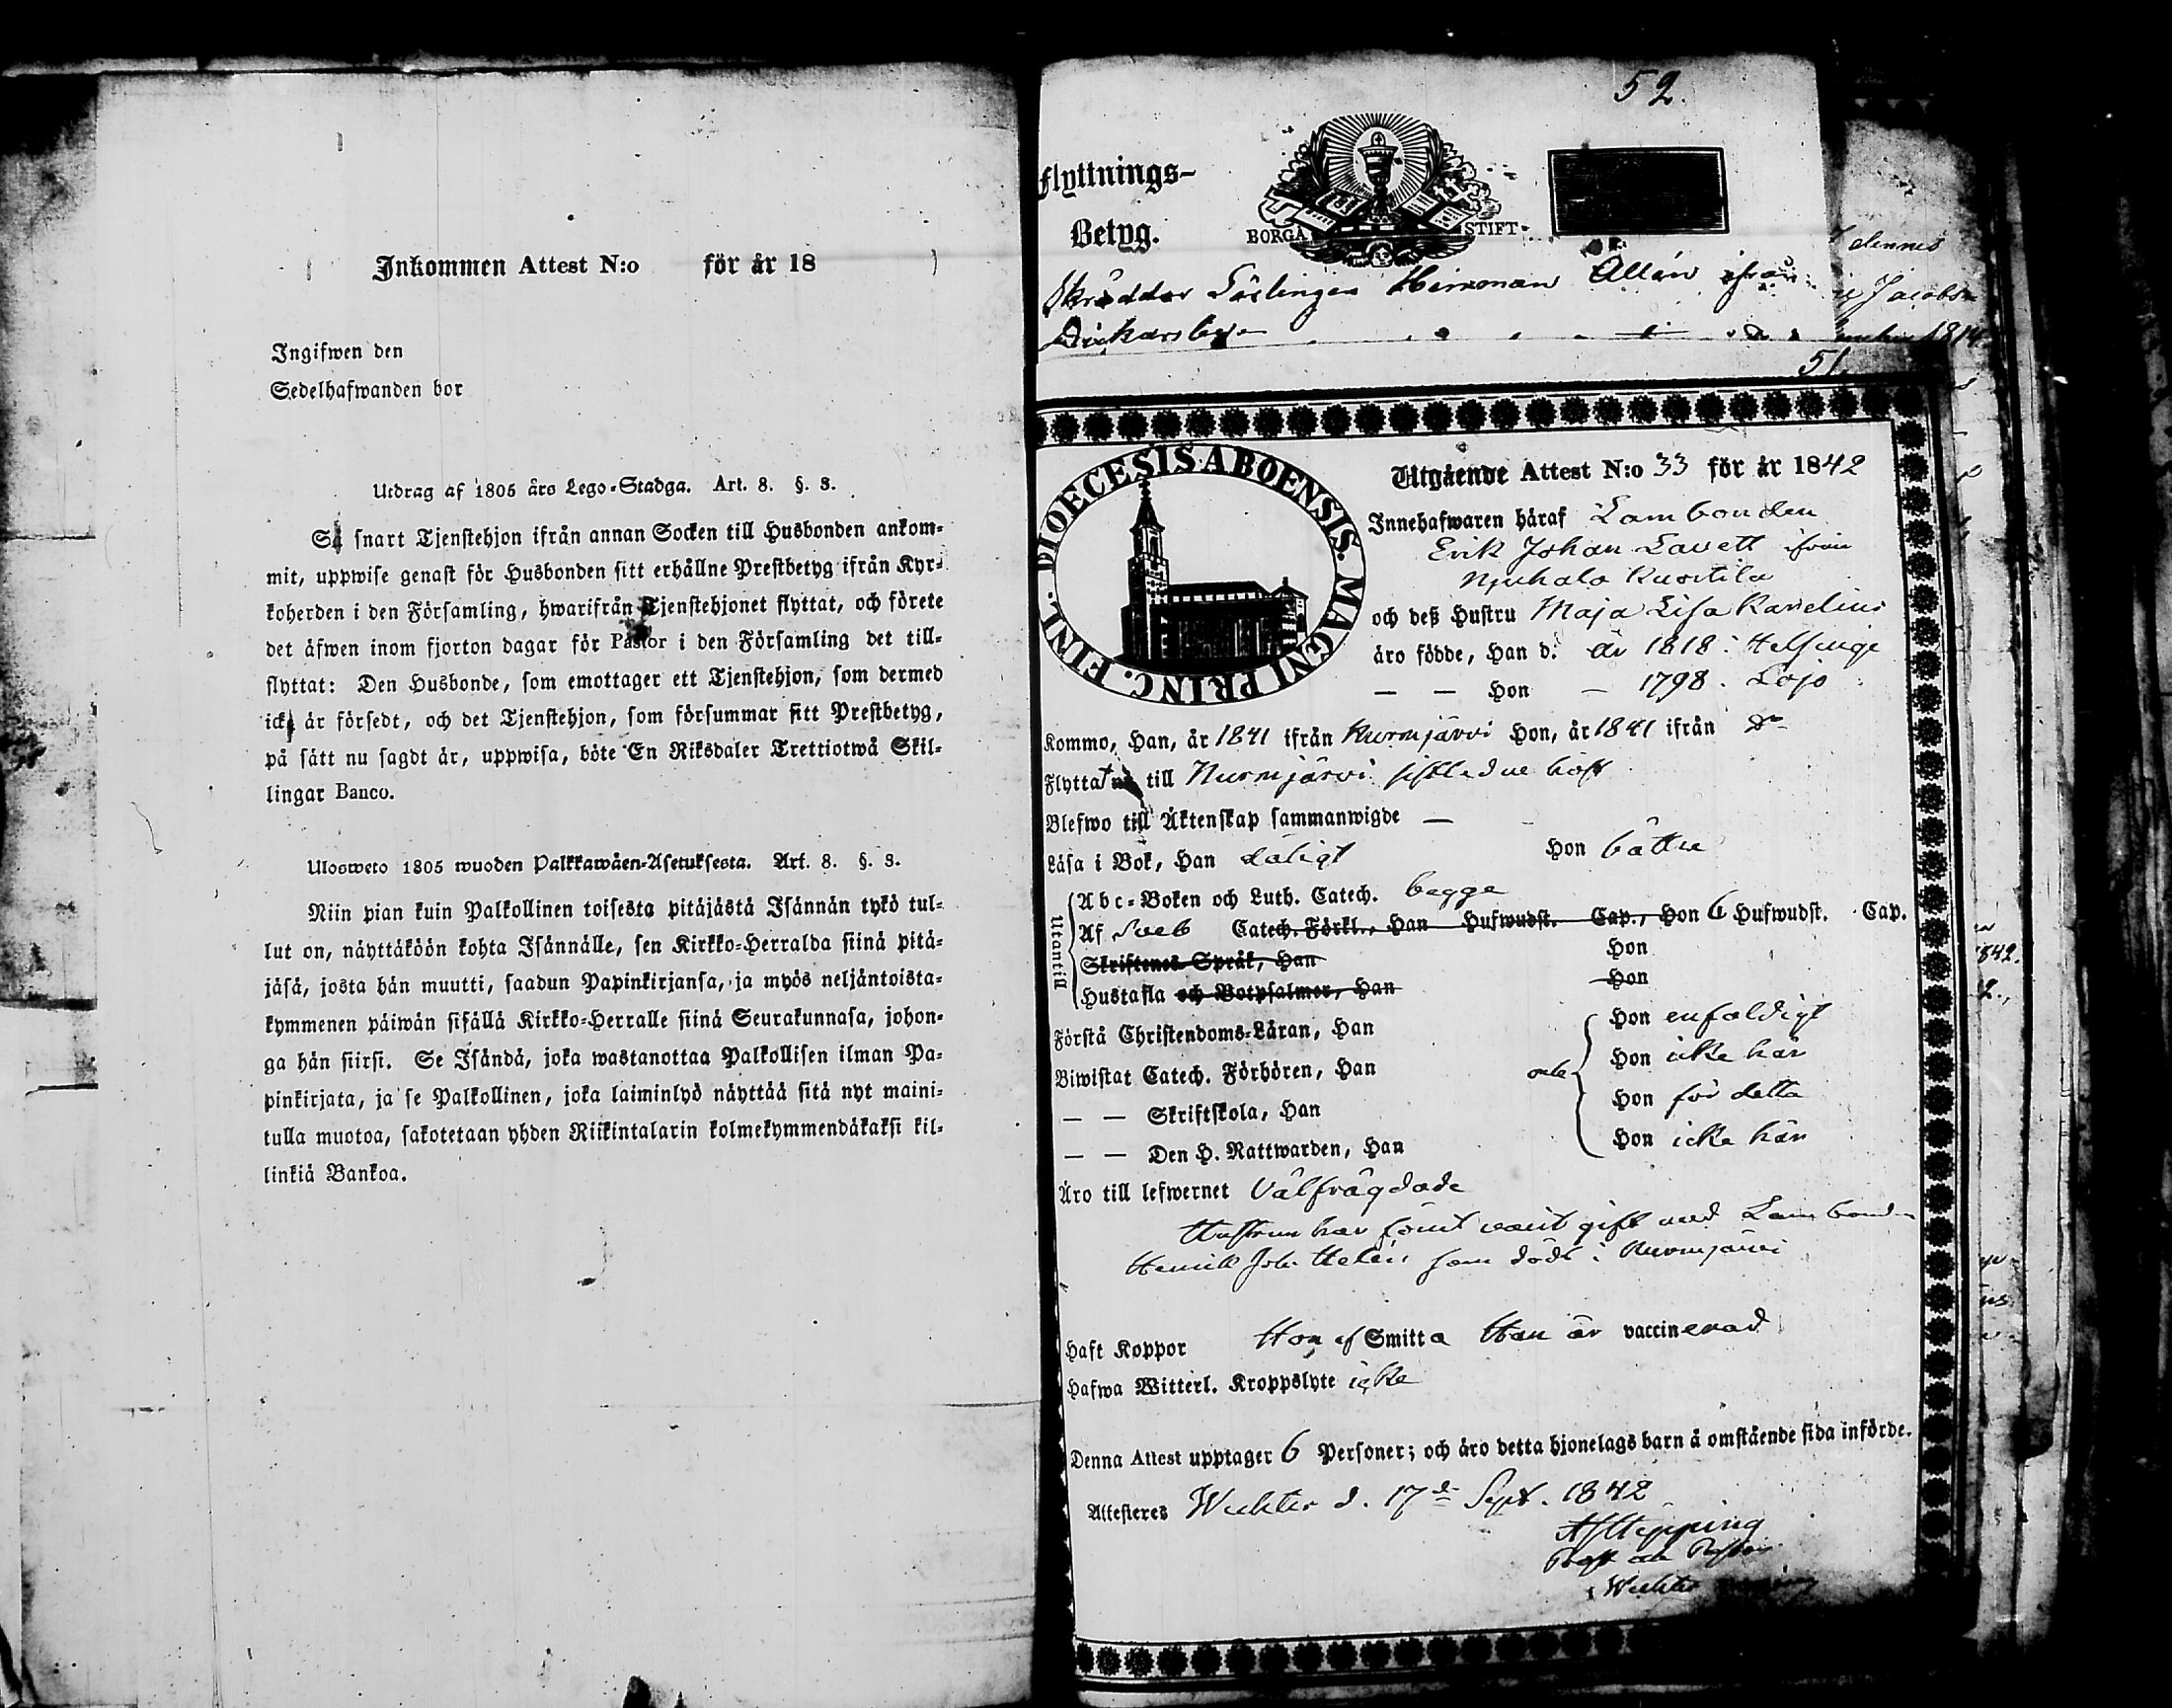 Inkommen Attest N:o för år 18
Ingifwen den
Sedelhafwanden bor
Utdrag af 1805 års Lego-Stadga. Art. 8. §. 3.
Så snart Tjenstehjon ifrån annan Socken till Husbonden ankom-
mit, uppwise genast för Husbonden sitt erhållne Prestbetyg ifrån Kyr-
koherden i den Församling, hwarifrån Tjenstehjonet flyttat, och förete
det äfwen inom fjorton dagar för Pastor i den Församling det till-
flyttat: Den Husbonde, som emottager ett Tjenstehjon, som dermed
icke är försedt, och det Tjenstehjon, som försummar sitt Prestbetyg,
på sätt nu sagdt är, uppwisa, böte En Riksdaler Trettiotwå Skil-
lingar Banco.
Ulosweto 1805 wuoden Palkkawäen-Asetuksesta. Art. 8. §. 3.
Niin pian kuin Palkollinen toisesta pitäjästä Isännän tykö tul-
lut on, näyttäköön kohta Isännälle, sen Kirkko-Herralda siinä pitä-
jäsä, josta hän muutti, saadun Papinkirjansa, ja myös neljäntoista-
kymmenen päiwän sisällä Kirkko-Herralle siinä Seurakunnasa, johon-
ga hän siirsi. Se Isändä, joka wastanottaa Palkollisen ilman Pa-
pinkirjata, ja se Palkollinen, joka laiminlyö näyttää sitä nyt maini-
tulla muotoa, sakotetaan yhden Riikintalarin kolmekymmendäkaksi kil-
linkiä Bankoa.
52.
Flyttnings-
Betyg.
BORGÅ STIFT
Skräddar Lärlingen Herrman Allén ifrån
51
DIOECESIS ABOENSIS. MAGNI PRINC. FINL.
Utgående Attest N:o 33 för år 1842
Innehafwaren häraf Lambonden
Erik Johan Lavett ifrån
Nyuhala Kuortila
och deß Hustru Maja Lisa Karelius
äro födde, Han d. år 1818 : Helsinge
— — Hon — 1798 . Lojo
Kommo, Han, år 1841 ifrån Nurmjärvi Hon, år 1841 ifrån Do
Flytta nu till Nurmjärvi sistledne höst
Blefwo till Äktenskap sammanwigde —
Läsa i Bok, Han dåligt Hon bättre
Utantill
Abc-Boken och Luth. Catech. begge
Af Sveb Catech. Förkl., Han Hufwudst. Cap., Hon 6 Hufwudst. Cap.
Skriftenes Språk, Han Hon
Hustafla och Botpsalmer, Han Hon
Förstå Christendoms-Läran, Han Hon enfaldigt
Biwistat Catech. Förhören, Han Hon icke här
— — Skriftskola, Han Hon för detta
— — Den H. Nattwarden, Han Hon icke här
Äro till lefwernet Välfrägdade
Hustrun har förut varit gift med Lambonden
Henrik Joh. Helén som dödt i Nurmjärvi
Haft Koppor Hon af Smitta Han är vaccinerad
Hafwa Witterl. Kroppslyte icke
Denna Attest upptager 6 Personer; och äro detta hjonelags barn å omstående sida införde.
Attesteres Wichtis d. 17de Sept. 1842